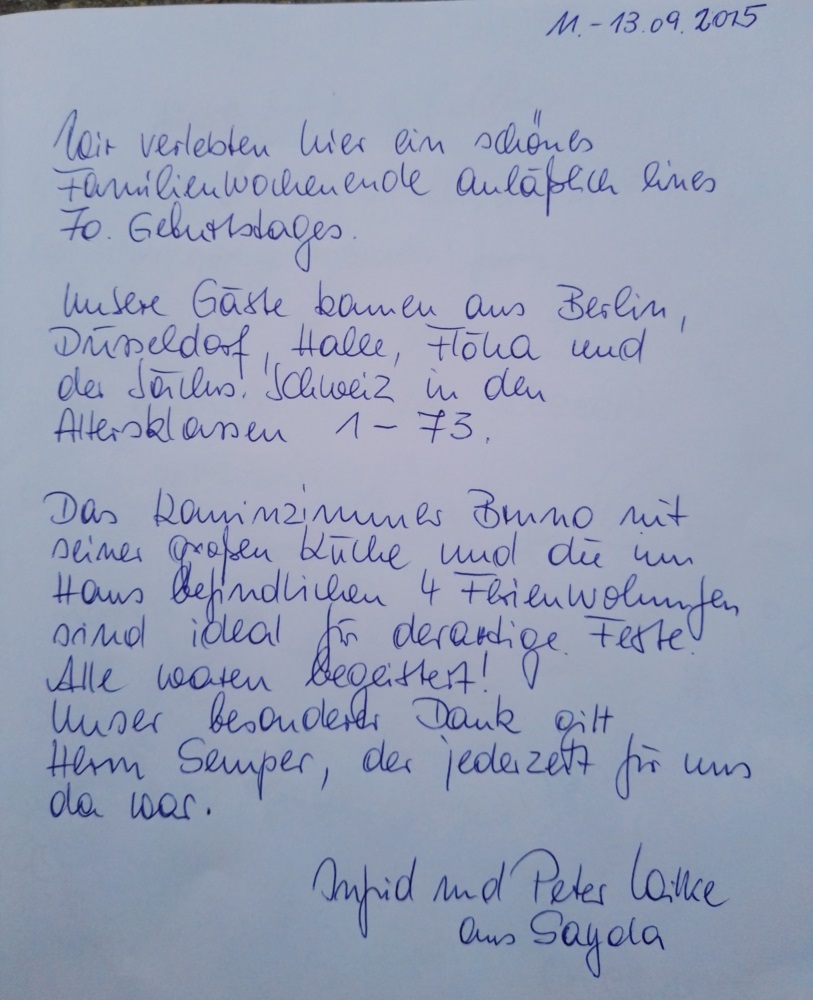 11. - 13.09.2015
Wir verlebten hier ein schönes
Familienwochenende anläßlich eines
70. Geburtstages.
Unsere Gäste kamen aus Berlin,
Düsseldorf, Halle, Flöha und
der Sächs. Schweiz in den
Altersklassen 1 - 73.
Das Kaminzimmer Bruno mit
seiner großen Küche und die im
Haus befindlichen 4 Ferienwohnungen
sind ideal für derartige Feste.
Alle waren begeistert!
Unser besonderer Dank gilt
Herrn Semper, der jederzeit für uns
da war.
Ingrid und Peter
aus Sayda